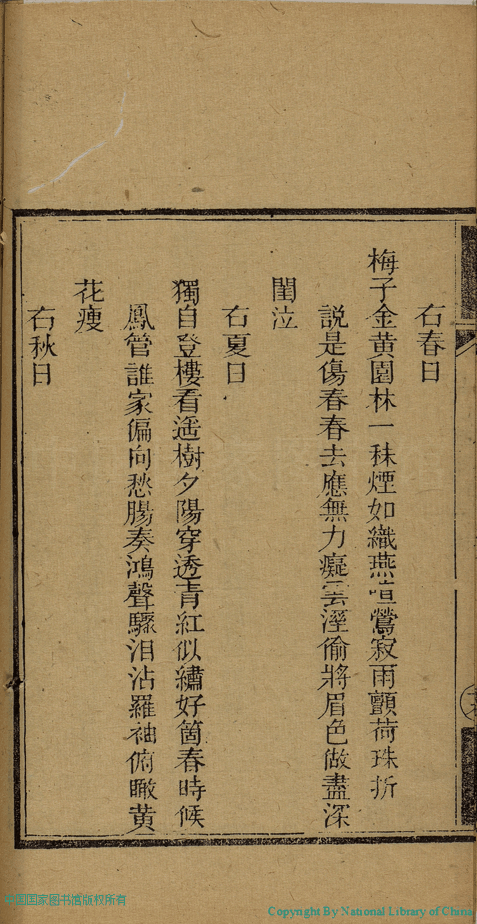 右春日
梅子金黃園林一秣煙如織燕喧鶯寂雨顫荷珠折
說是傷春春去應無力癡雲溼偷將眉色做盡深
閨泣
右夏日
獨自登樓看遥樹夕陽穿透青紅似繡好箇春時候
鳳管誰家偏向愁腸奏鴻聲驟泪沾羅袖俯瞰黃
花瘦
右秋日
中国国家图书馆版权所有
Copyright By National Library of China